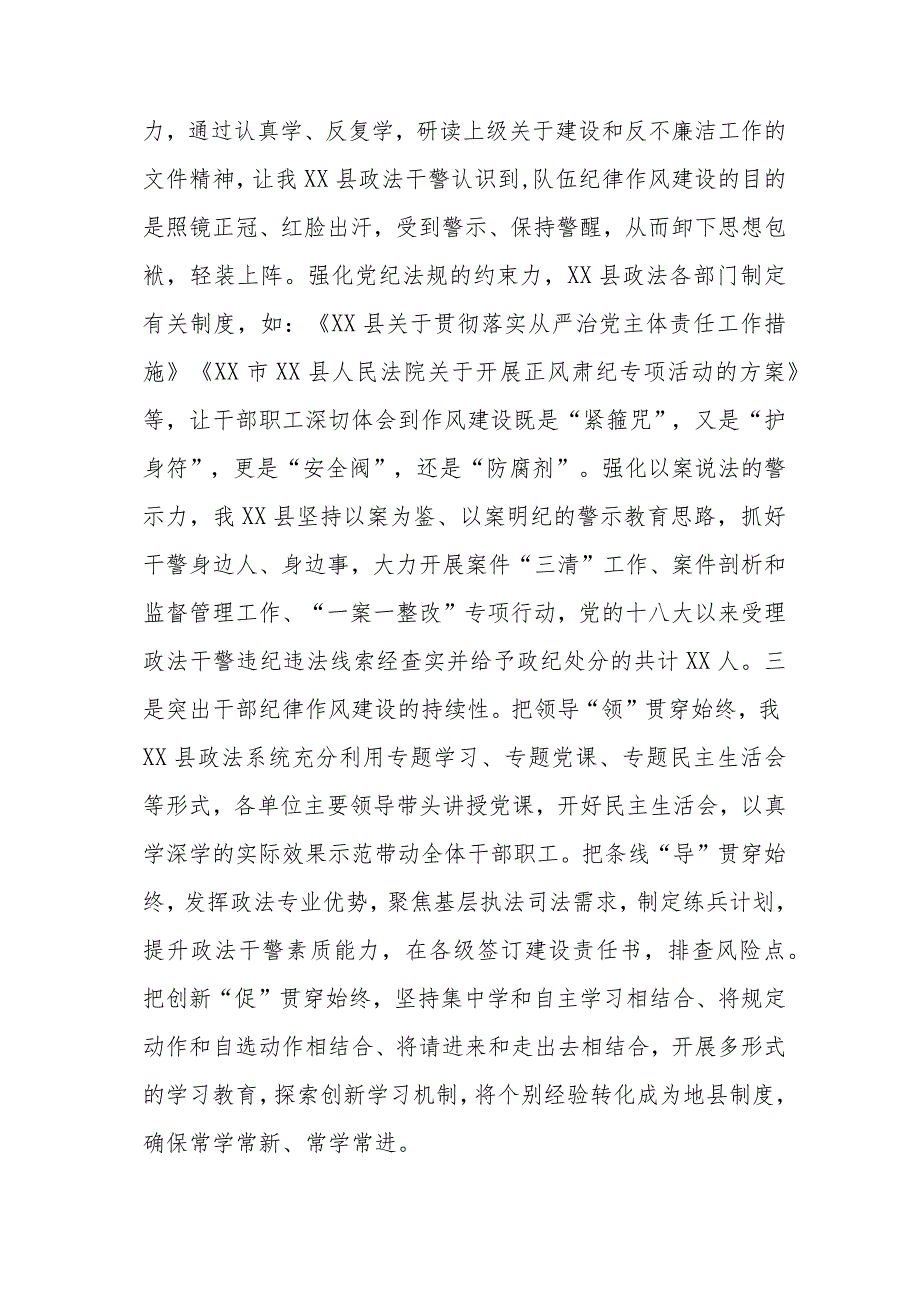 力，通过认真学、反复学，研读上级关于建设和反不廉洁工作的
文件精神，让我 XX 县政法干警认识到,队伍纪律作风建设的目的
是照镜正冠、红脸出汗，受到警示、保持警醒，从而卸下思想包
袱，轻装上阵。强化党纪法规的约束力，XX 县政法各部门制定
有关制度，如：《XX 县关于贯彻落实从严治党主体责任工作措
施》《XX 市 XX 县人民法院关于开展正风肃纪专项活动的方案》
等，让干部职工深切体会到作风建设既是“紧箍咒”，又是“护
身符”，更是“安全阀”，还是“防腐剂”。强化以案说法的警
示力，我 XX 县坚持以案为鉴、以案明纪的警示教育思路，抓好
干警身边人、身边事，大力开展案件“三清”工作、案件剖析和
监督管理工作、“一案一整改”专项行动，党的十八大以来受理
政法干警违纪违法线索经查实并给予政纪处分的共计 XX 人。三
是突出干部纪律作风建设的持续性。把领导“领”贯穿始终，我
XX 县政法系统充分利用专题学习、专题党课、专题民主生活会
等形式，各单位主要领导带头讲授党课，开好民主生活会，以真
学深学的实际效果示范带动全体干部职工。把条线“导”贯穿始
终，发挥政法专业优势，聚焦基层执法司法需求，制定练兵计划，
提升政法干警素质能力，在各级签订建设责任书，排查风险点。
把创新“促”贯穿始终，坚持集中学和自主学习相结合、将规定
动作和自选动作相结合、将请进来和走出去相结合，开展多形式
的学习教育，探索创新学习机制，将个别经验转化成为地县制度，
确保常学常新、常学常进。